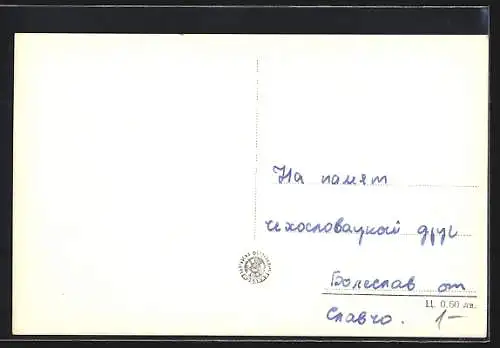 На памят
чехословацкой друг
Болеслав от
Ц. 0.60 лв.
Славчо. 1-